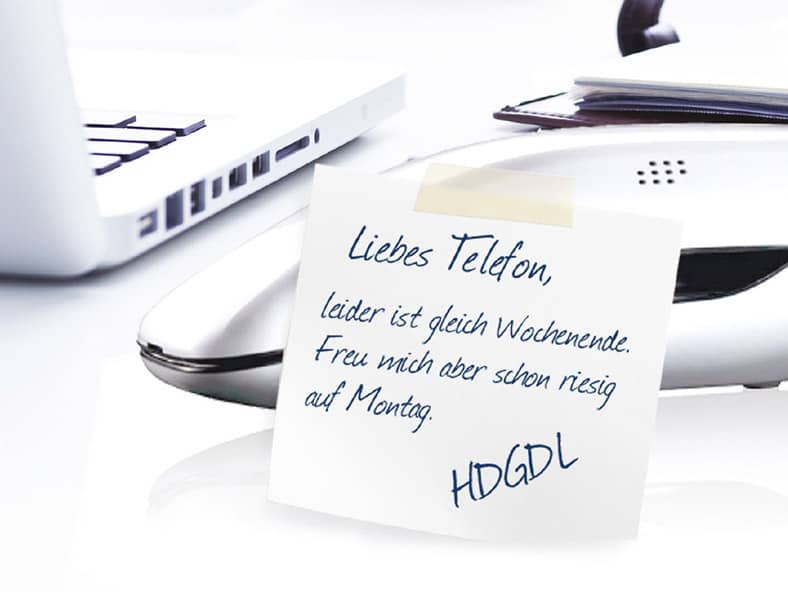 Liebes Telefon,
leider ist gleich Wochenende.
Freu mich aber schon riesig
auf Montag.
HDGDL